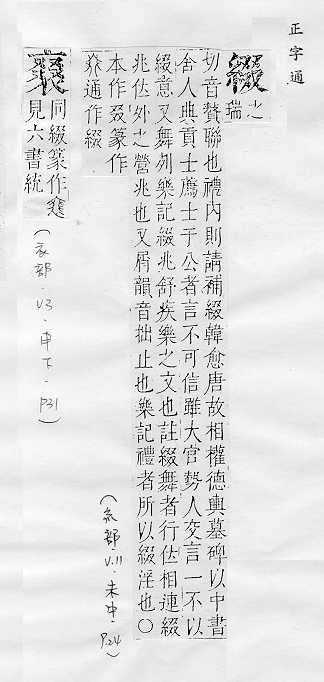 正字通
綴之瑞
切音贅聯也禮內則請補綴韓愈唐故相權德輿墓碑以中書
舍人典貢士薦士于公者言不可信雖大官勢人交言一不以
綴意又舞列樂記綴兆舒疾樂之文也註綴舞者行位相連綴
兆位外之營兆也又屑韻音拙止也樂記禮者所以綴淫也○
本作叕篆作
通作綴
同綴篆作
見六書統
(糸部.V.11.未中.P.24)
(衣部.V3.申下.P31)